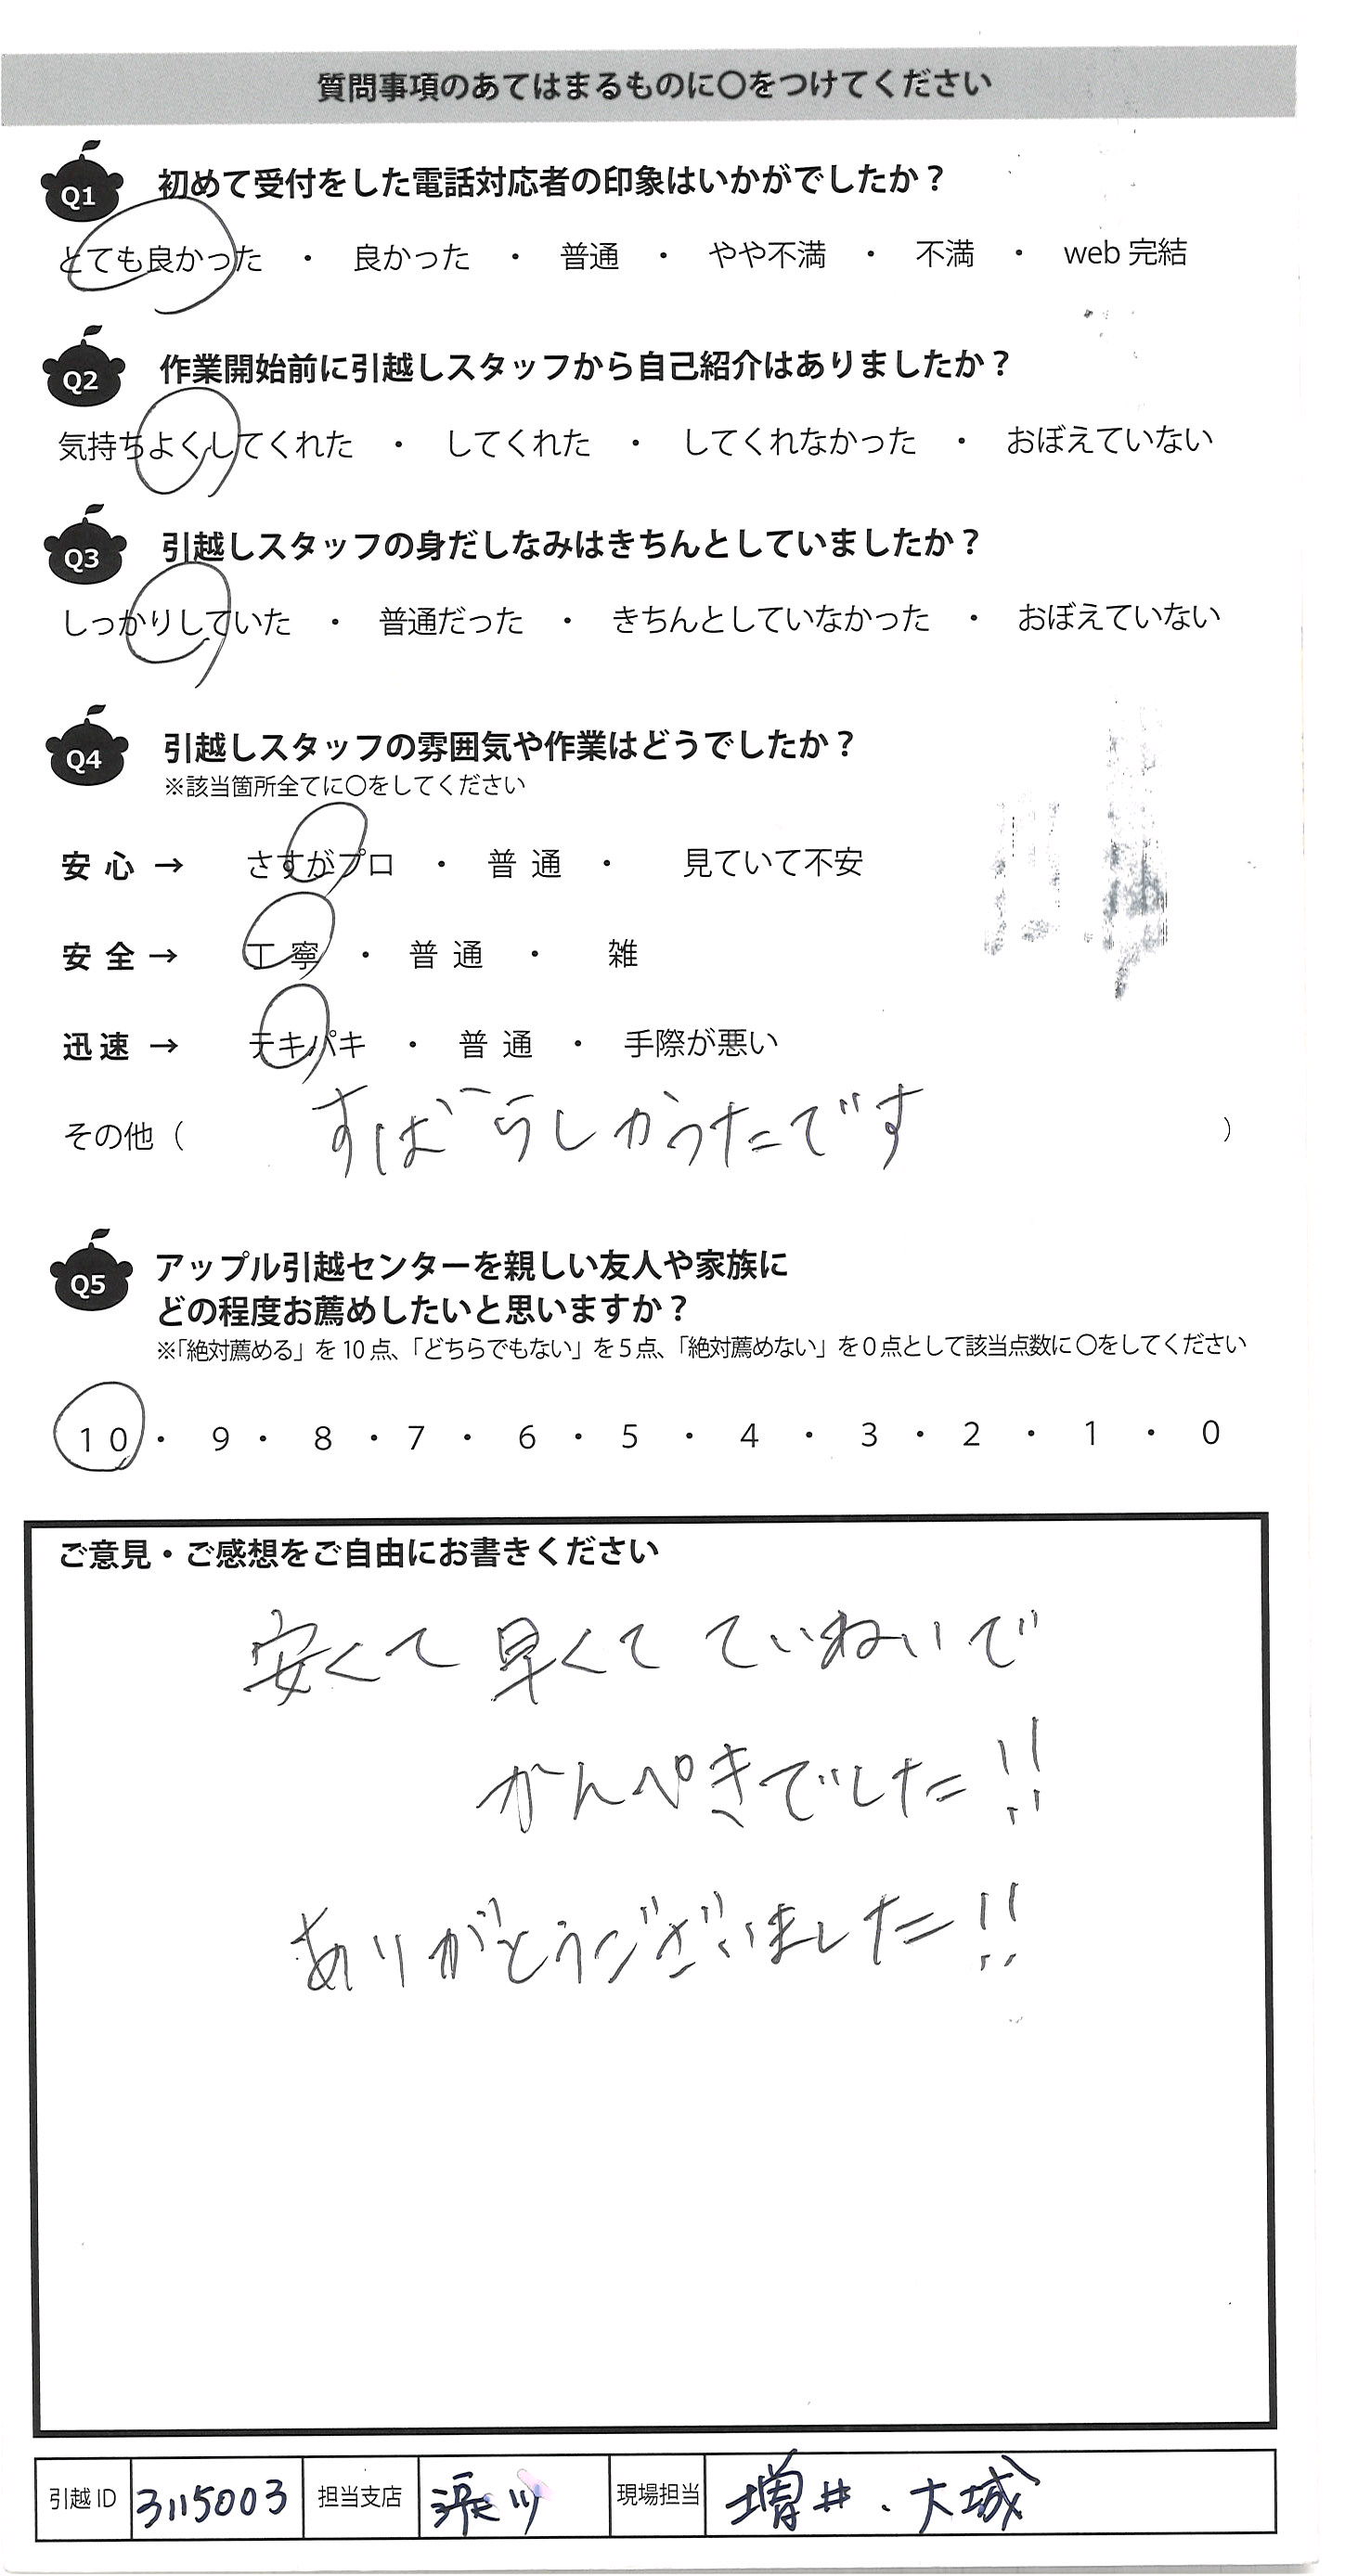 質問事項のあてはまるものに〇をつけてください
Q1 初めて受付をした電話対応者の印象はいかがでしたか？
とても良かった ・ 良かった ・ 普通 ・ やや不満 ・ 不満 ・ web 完結
Q2 作業開始前に引越しスタッフから自己紹介はありましたか？
気持ちよくしてくれた ・ してくれた ・ してくれなかった ・ おぼえていない
Q3 引越しスタッフの身だしなみはきちんとしていましたか？
しっかりしていた ・ 普通だった ・ きちんとしていなかった ・ おぼえていない
Q4 引越しスタッフの雰囲気や作業はどうでしたか？
※該当箇所全てに〇をしてください
安心 → さすがプロ ・ 普通 ・ 見ていて不安
安全 → 丁寧 ・ 普通 ・ 雑
迅速 → テキパキ ・ 普通 ・ 手際が悪い
その他（ すばらしかったです ）
Q5 アップル引越センターを親しい友人や家族に
どの程度お薦めしたいと思いますか？
※「絶対薦める」を 10 点、「どちらでもない」を 5 点、「絶対薦めない」を 0 点として該当点数に 〇をしてください
10 ・ 9 ・ 8 ・ 7 ・ 6 ・ 5 ・ 4 ・ 3 ・ 2 ・ 1 ・ 0
ご意見・ご感想をご自由にお書きください
安くて 早くて ていねいで
かんぺきでした!!
ありがとうございました!!
引越 ID 3115003 担当支店 現場担当 増井・大城